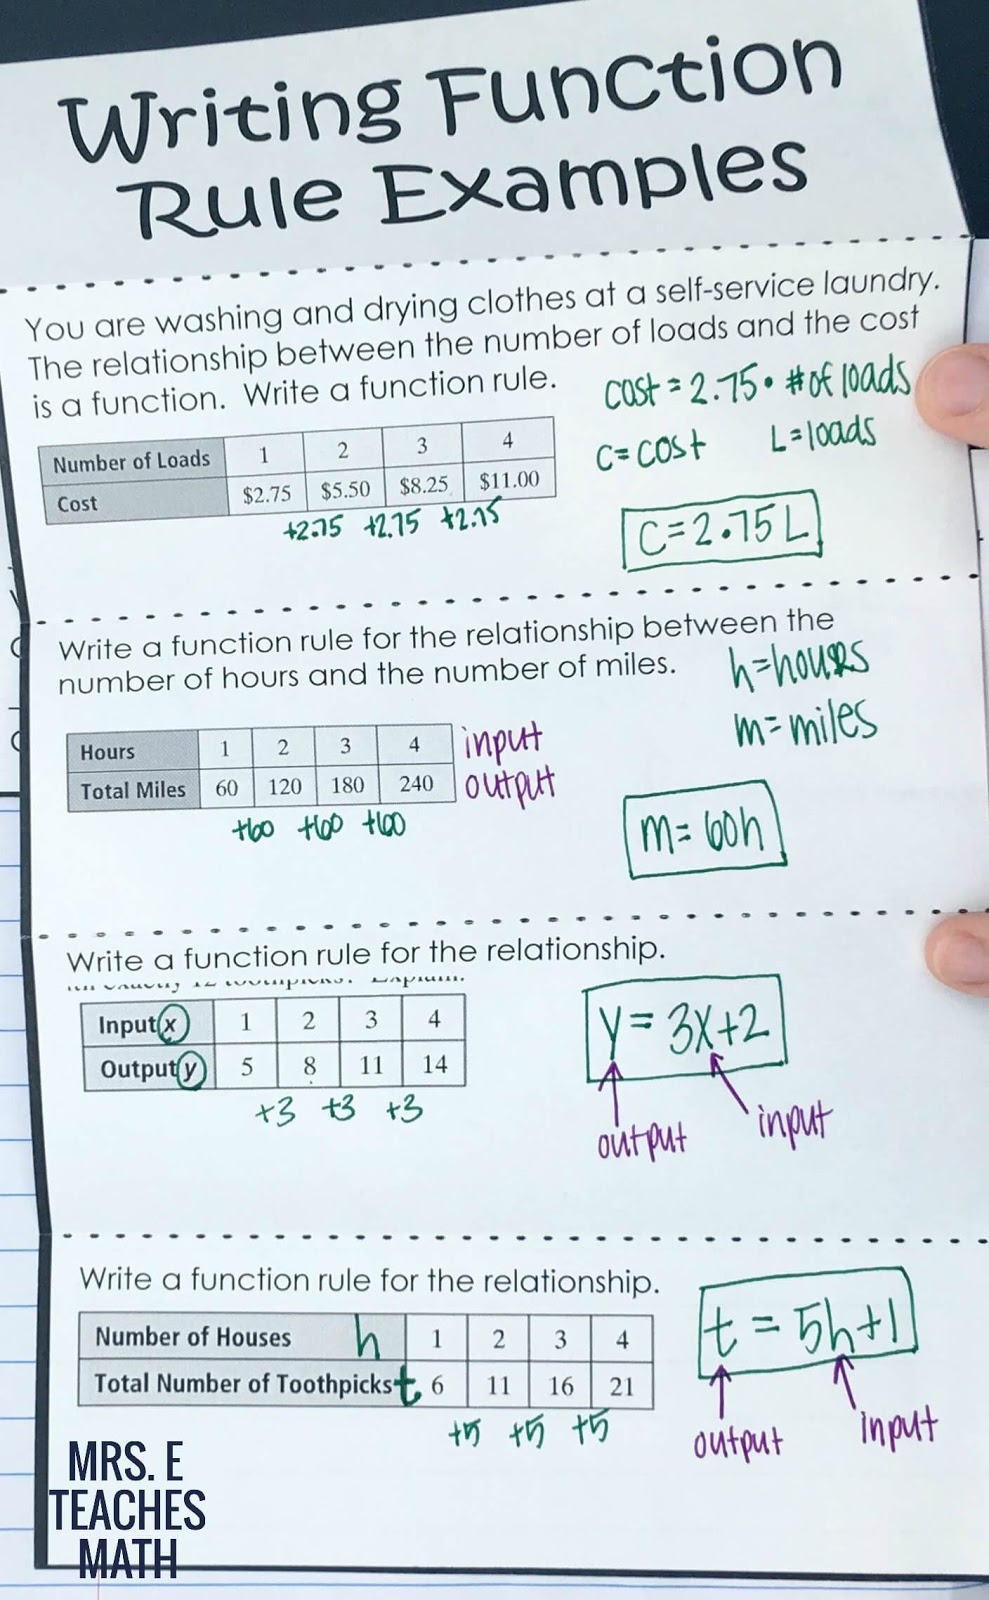 Writing Function
Rule Examples
You are washing and drying clothes at a self-service laundry.
The relationship between the number of loads and the cost
is a function. Write a function rule.
cost = 2.75 • # of loads
C = cost L = loads
Number of Loads 1 2 3 4
Cost $2.75 $5.50 $8.25 $11.00
+2.75 +2.75 +2.75
C = 2.75 L
Write a function rule for the relationship between the
number of hours and the number of miles.
h = hours
m = miles
Hours 1 2 3 4 input
Total Miles 60 120 180 240 output
+60 +60 +60
m = 60h
Write a function rule for the relationship.
Input x 1 2 3 4
Output y 5 8 11 14
+3 +3 +3
y = 3x+2
output input
Write a function rule for the relationship.
Number of Houses h 1 2 3 4
Total Number of Toothpicks t 6 11 16 21
+5 +5 +5
t = 5h+1
output input
MRS. E
TEACHES
MATH